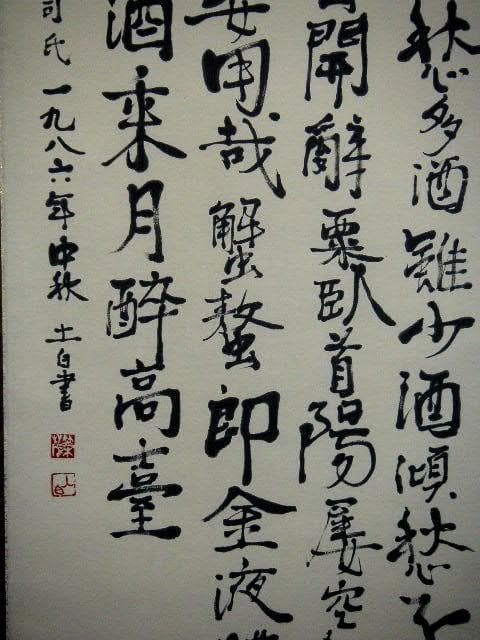 愁多酒雖少酒傾愁不
開辭粟臥首陽屢空
安用哉蟹螯即金液
酒乘月醉高臺
司氏 一九八六年中秋 土白書